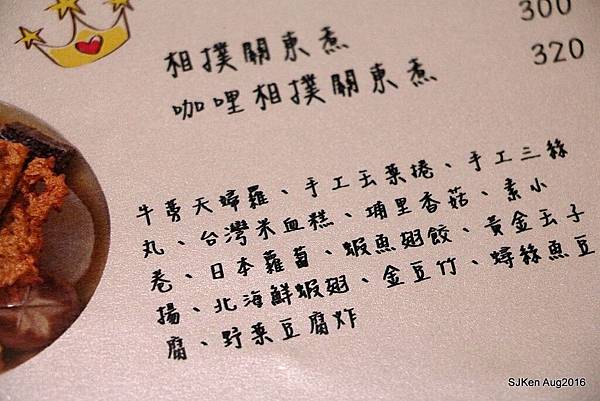 相撲關東煮 300
咖哩相撲關東煮 320
牛蒡天婦羅、手工玉葉捲、手工三絲
丸、台灣米血糕、埔里香菇、素小
卷、日本蘿蔔、蝦魚翅餃、黃金玉子
揚、北海鮮蝦翅、金豆竹、蟳絲魚豆
腐、野菜豆腐炸
SJKen Aug2016